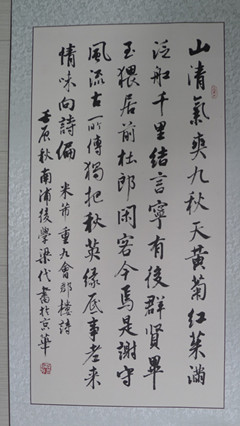 山清氣爽九秋天黃菊紅茱滿
泛船千里結言寧有後群賢畢
至猥居前杜郎閑客今焉是謝守
風流古所傳獨把秋英緣底事老来
情味向詩偏 米芾重九會郡樓詩
壬辰秋南浦後學梁代書於京華